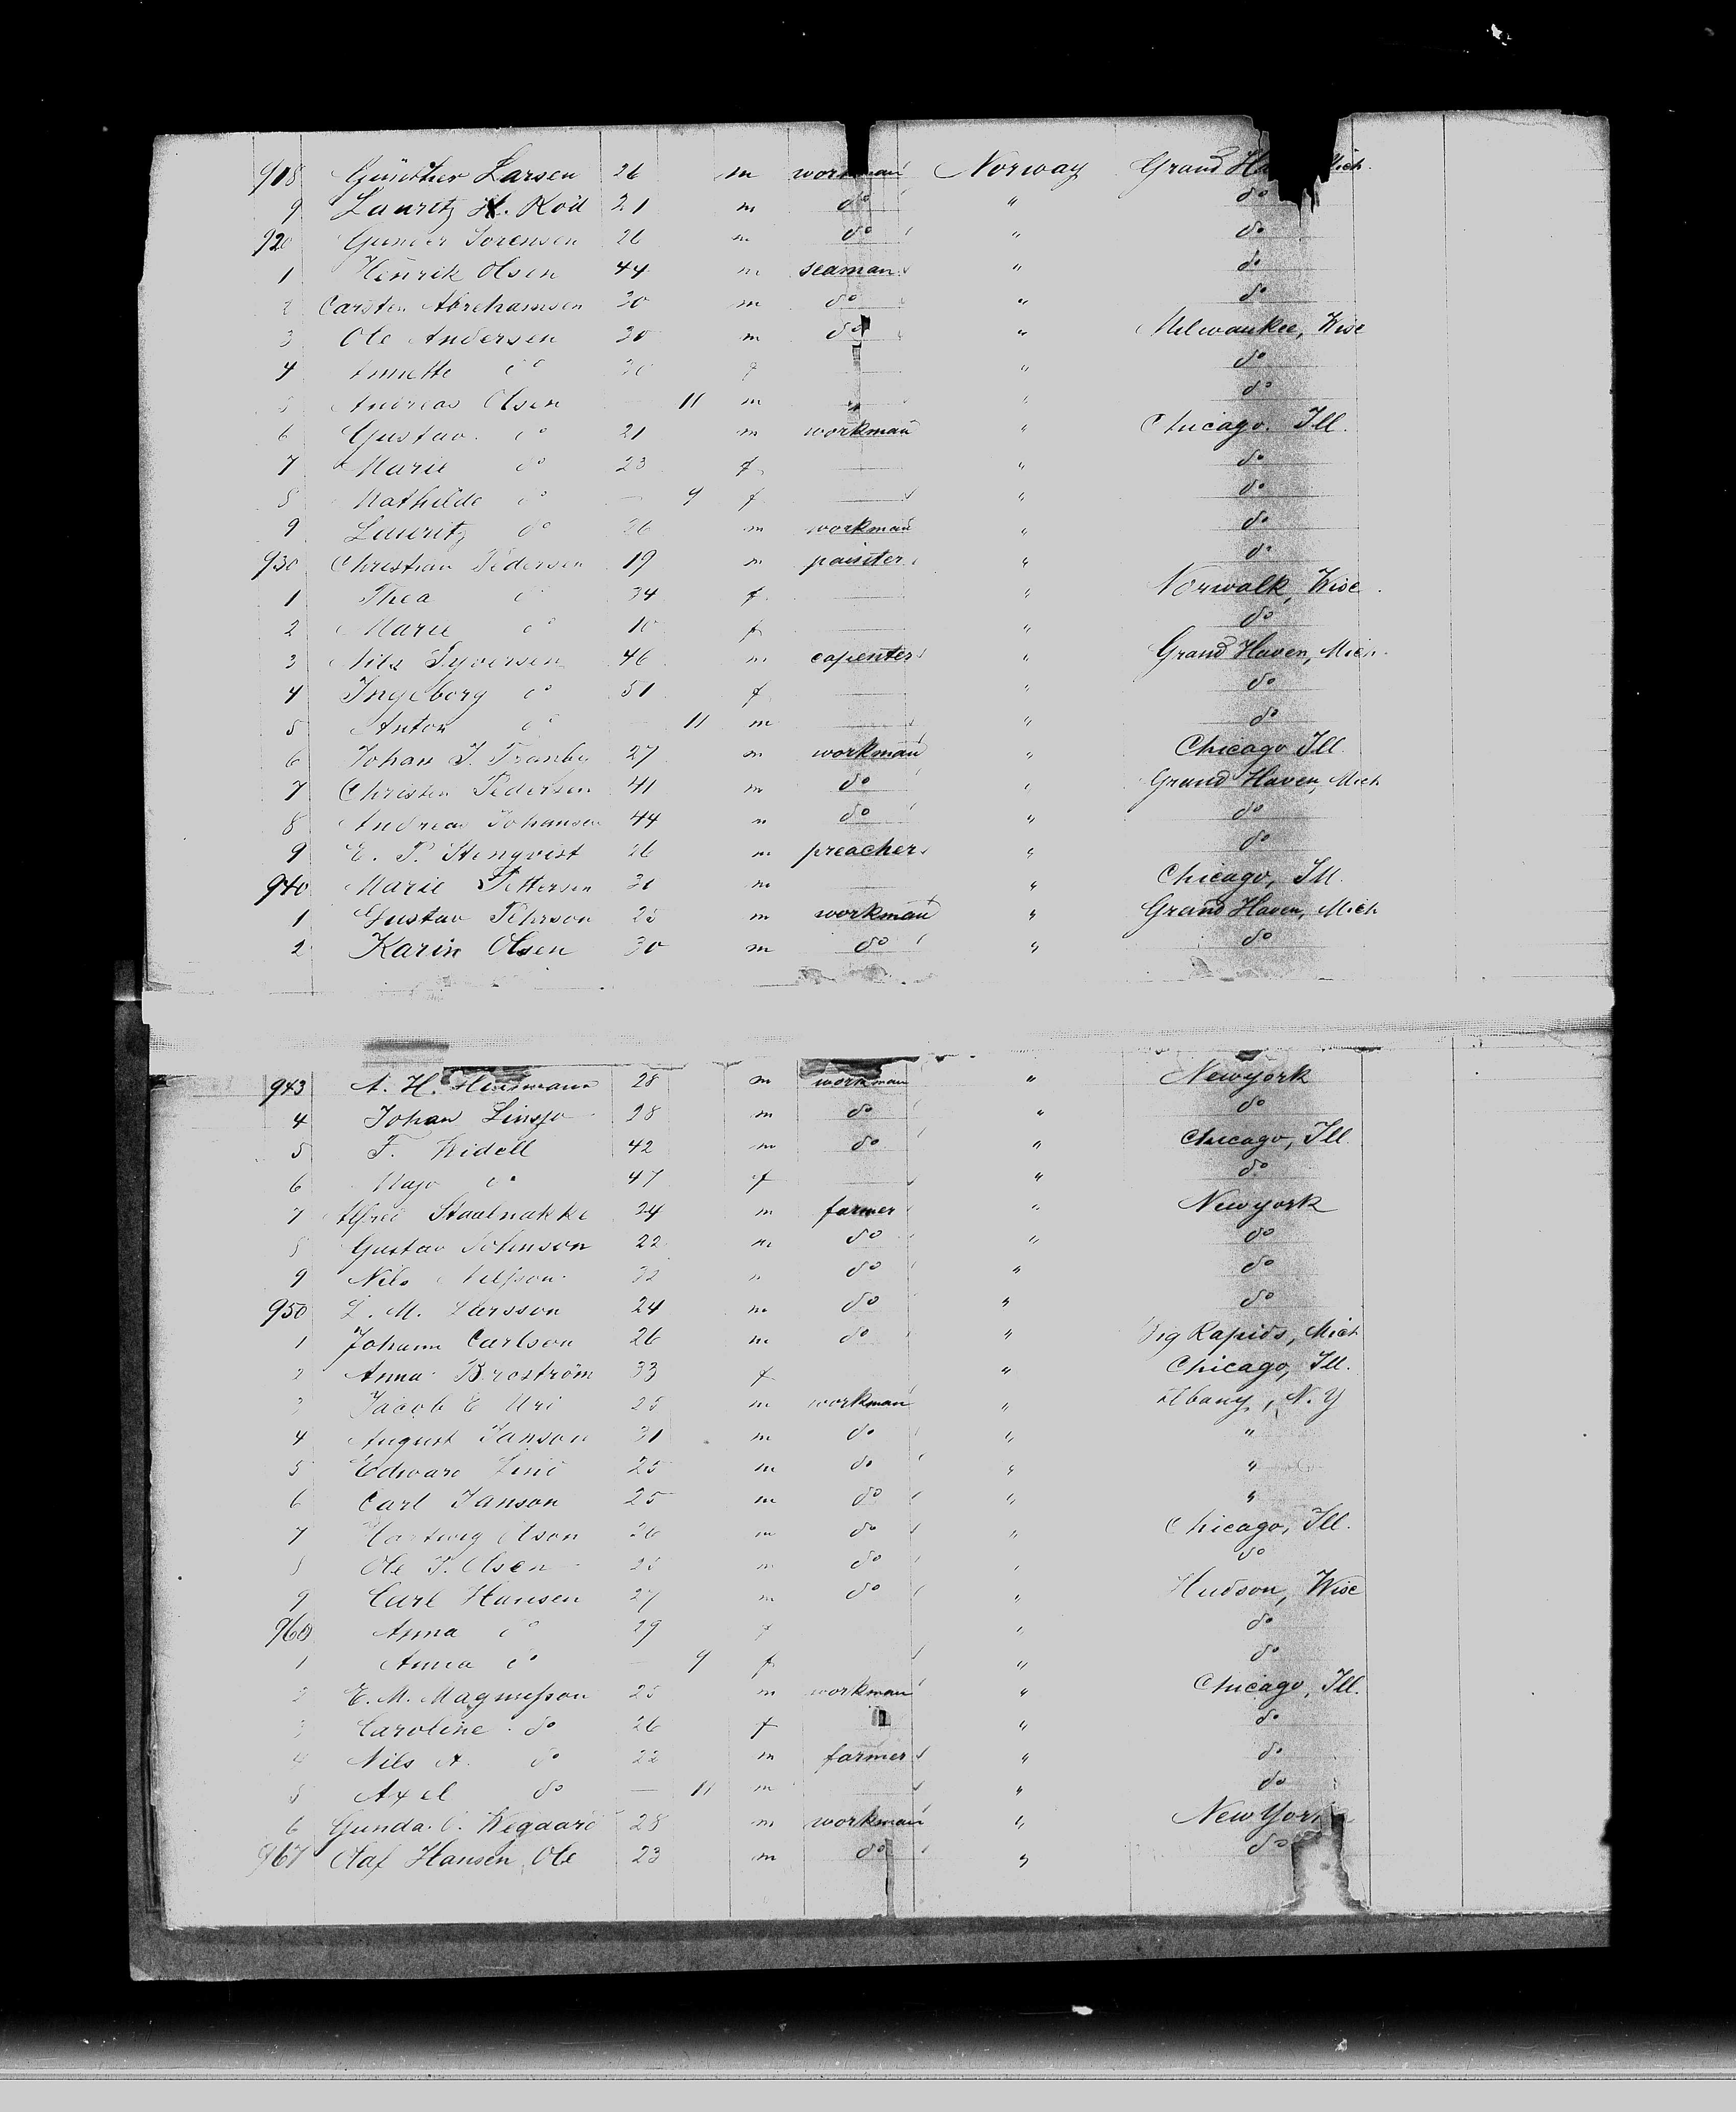 918 Günther Larsen 26 m workman Norway Grand Ha Mich.
9 Lauritz H. Röd 21 m do " do
920 Gunder Sorensen 26 m do " do
1 Henrik Olsen 44 m seaman " do
2 Carsten Abrehamsen 30 m do " do
3 Ole Andersen 30 m do " Milwaukee, Wisc
4 Annette do 30 f " do
5 Andreas Olsen — 11 m " do
6 Gustav do 21 m workman " Chicago. Ill.
7 Marie do 23 f " do
8 Mathilde do — 9 f " do
9 Lauritz do 26 m workman " do
930 Christian Pedersen 19 m painter " do
1 Thea do 34 f " Norwalk, Wisc.
2 Marie do 10 f " do
3 Nils Syversen 46 m capenter " Grand Haven, Mich.
4 Ingeborg do 51 f " do
5 Anton do — 11 m " do
6 Johan J. Tranby 27 m workman " Chicago Ill.
7 Christen Pedersen 41 m do " Grand Haven, Mich
8 Andreas Johansen 44 m do " do
9 E. P. Stenqvist 26 m preacher " do
940 Marie Pettersen 30 m " Chicago, Ill.
1 Gustav Pehrson 25 m workman " Grand Haven, Mich
2 Karin Olsen 30 m do " do
943 A. H. 28 m workman " Newyork
4 Johan Linsjo 28 m do " do
5 F. Widell 42 m do " Chicago, Ill.
6 Maja do 47 f " do
7 Alfred Staalnakke 24 m farmer " Newyork
8 Gustav Johnson 22 m do " do
9 Nils Nilsson 32 m do " do
950 L. M. Larsson 24 m do " do
1 Johann Carlson 26 m do " Big Rapids, Mich
2 Anna Broström 33 f " Chicago, Ill.
3 Jacob E Uri 25 m workman " Albany, N. Y
4 August Janson 31 m do " "
5 Edward Lind 25 m do " "
6 Carl Janson 25 m do " "
7 Hartwig Olson 26 m do " Chicago, Ill.
8 Ole T. Olsen 25 m do " do
9 Carl Hansen 27 m do " Hudson, Wisc
960 Anna do 29 f " do
1 Anna do — 9 f " do
2 E. M. Magnusson 25 m workman " Chicago, Ill.
3 Caroline do 26 f " do
4 Nils A. do 22 m farmer " do
5 Axel do — 11 m " do
6 Gunda. C. Wegaard 28 m workman " New York
967 Olaf Hansen Ole 23 m do " do